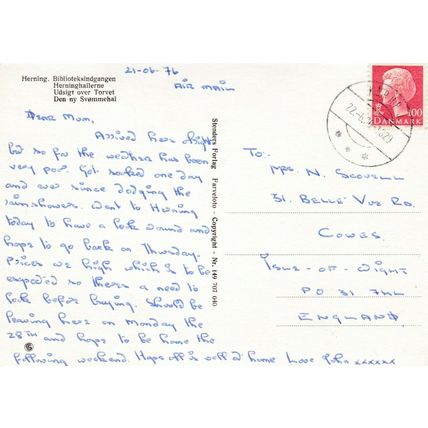 21-06-76
AIR MAIL
Herning. Biblioteksindgangen
Herninghallerne
Udsigt over Torvet
Den ny Svømmehal
DEAR MUM,
Arrived here alright
but so far the weather has been
very poor. Got soaked one day
and were since dodging the
rainshowers. Went to Herning
today to have a look around and
hope to go back on Thursday.
Prices are high which is to be
expected so theres a need to
look before buying. Should be
leaving here on Monday the
28TH and hope to be home the
following weekend. Hope all is well at home Love John xxxxxx
Stenders Forlag Farvefoto - Copyright - Nr. 149 707 040
TO:-
MRS. N. SCOVELL
31. BELLE VUE RD.
COWES
ISLE-OF-WIGHT
PO 31 7HL
ENGLAND
100
DANMARK